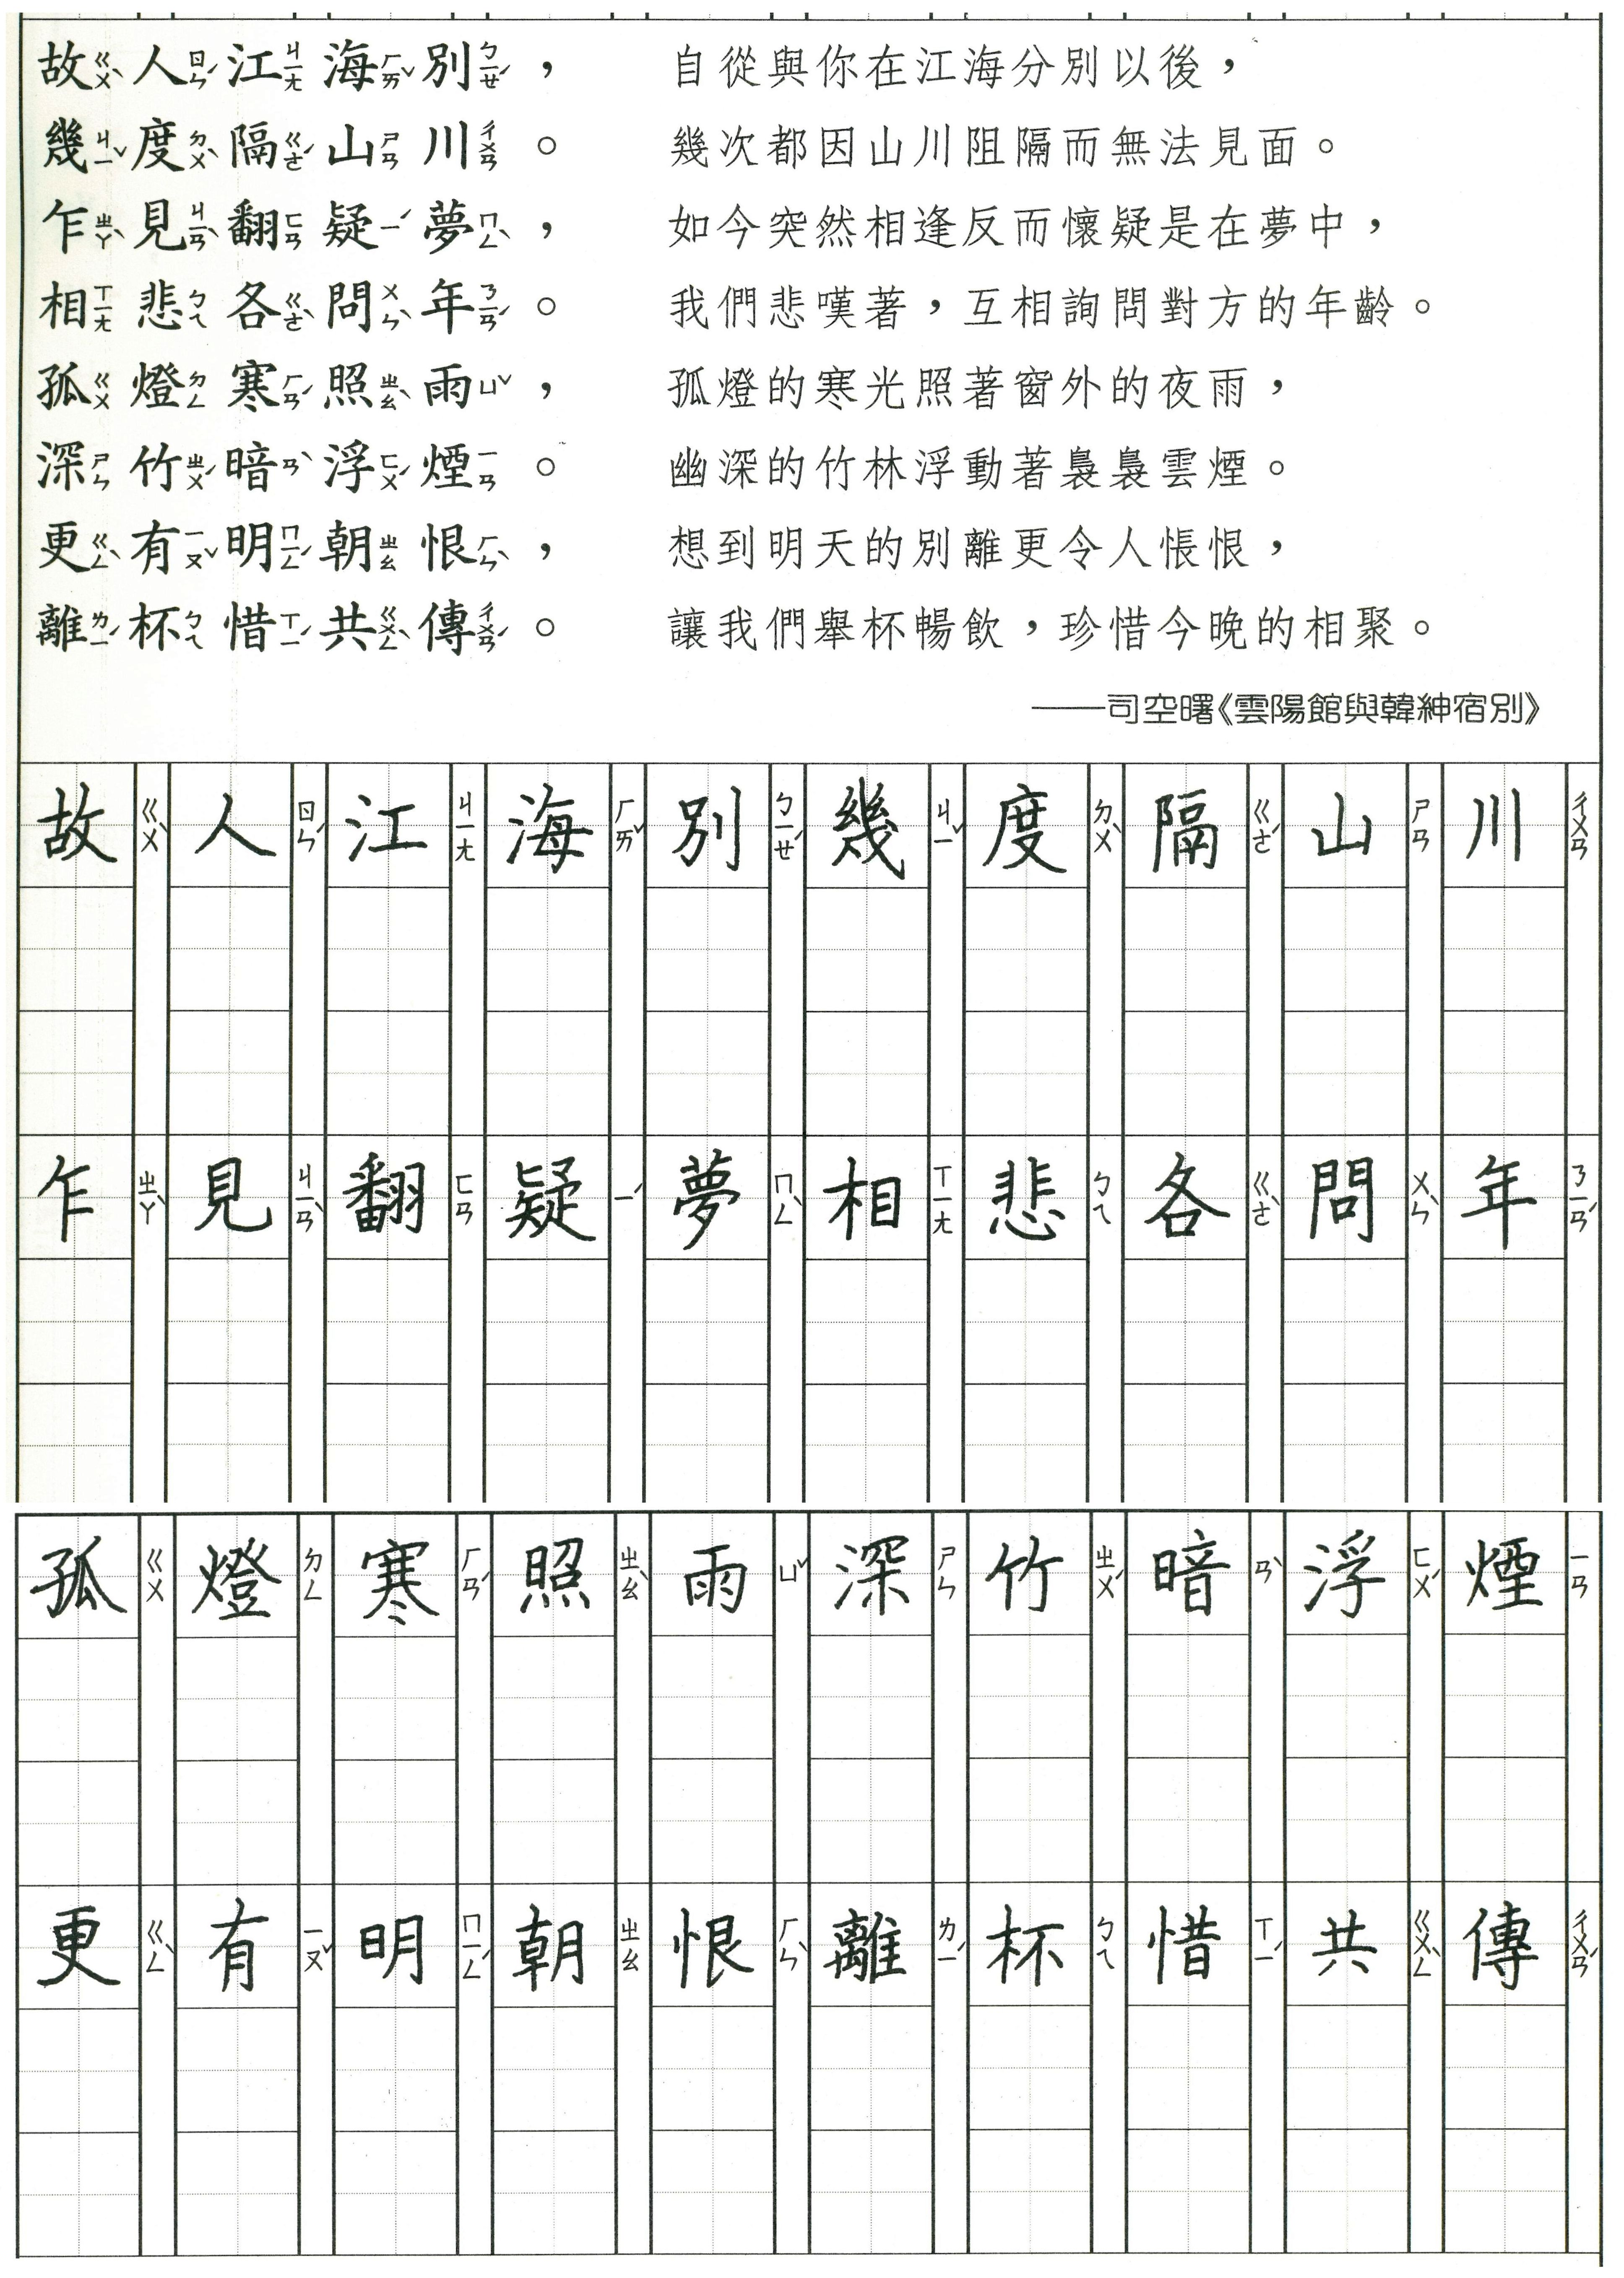 故ㄍㄨˋ人ㄖㄣˊ江ㄐㄧㄤ海ㄏㄞˇ別ㄅㄧㄝˊ， 自從與你在江海分別以後，
幾ㄐㄧˇ度ㄉㄨˋ隔ㄍㄜˊ山ㄕㄢ川ㄔㄨㄢ。 幾次都因山川阻隔而無法見面。
乍ㄓㄚˋ見ㄐㄧㄢˋ翻ㄈㄢ疑ㄧˊ夢ㄇㄥˋ， 如今突然相逢反而懷疑是在夢中，
相ㄒㄧㄤ悲ㄅㄟ各ㄍㄜˋ問ㄨㄣˋ年ㄋㄧㄢˊ。 我們悲嘆著，互相詢問對方的年齡。
孤ㄍㄨ燈ㄉㄥ寒ㄏㄢˊ照ㄓㄠˋ雨ㄩˇ， 孤燈的寒光照著窗外的夜雨，
深ㄕㄣ竹ㄓㄨˊ暗ㄢˋ浮ㄈㄨˊ煙ㄧㄢ。 幽深的竹林浮動著裊裊雲煙。
更ㄍㄥˋ有ㄧㄡˇ明ㄇㄧㄥˊ朝ㄓㄠ恨ㄏㄣˋ， 想到明天的別離更令人悵恨，
離ㄌㄧˊ杯ㄅㄟ惜ㄒㄧˊ共ㄍㄨㄥˋ傳ㄔㄨㄢˊ。 讓我們舉杯暢飲，珍惜今晚的相聚。
——司空曙《雲陽館與韓紳宿別》
故ㄍㄨˋ人ㄖㄣˊ江ㄐㄧㄤ海ㄏㄞˇ別ㄅㄧㄝˊ幾ㄐㄧˇ度ㄉㄨˋ隔ㄍㄜˊ山ㄕㄢ川ㄔㄨㄢ
乍ㄓㄚˋ見ㄐㄧㄢˋ翻ㄈㄢ疑ㄧˊ夢ㄇㄥˋ相ㄒㄧㄤ悲ㄅㄟ各ㄍㄜˋ問ㄨㄣˋ年ㄋㄧㄢˊ
孤ㄍㄨ燈ㄉㄥ寒ㄏㄢˊ照ㄓㄠˋ雨ㄩˇ深ㄕㄣ竹ㄓㄨˊ暗ㄢˋ浮ㄈㄨˊ煙ㄧㄢ
更ㄍㄥˋ有ㄧㄡˇ明ㄇㄧㄥˊ朝ㄓㄠ恨ㄏㄣˋ離ㄌㄧˊ杯ㄅㄟ惜ㄒㄧˊ共ㄍㄨㄥˋ傳ㄔㄨㄢˊ